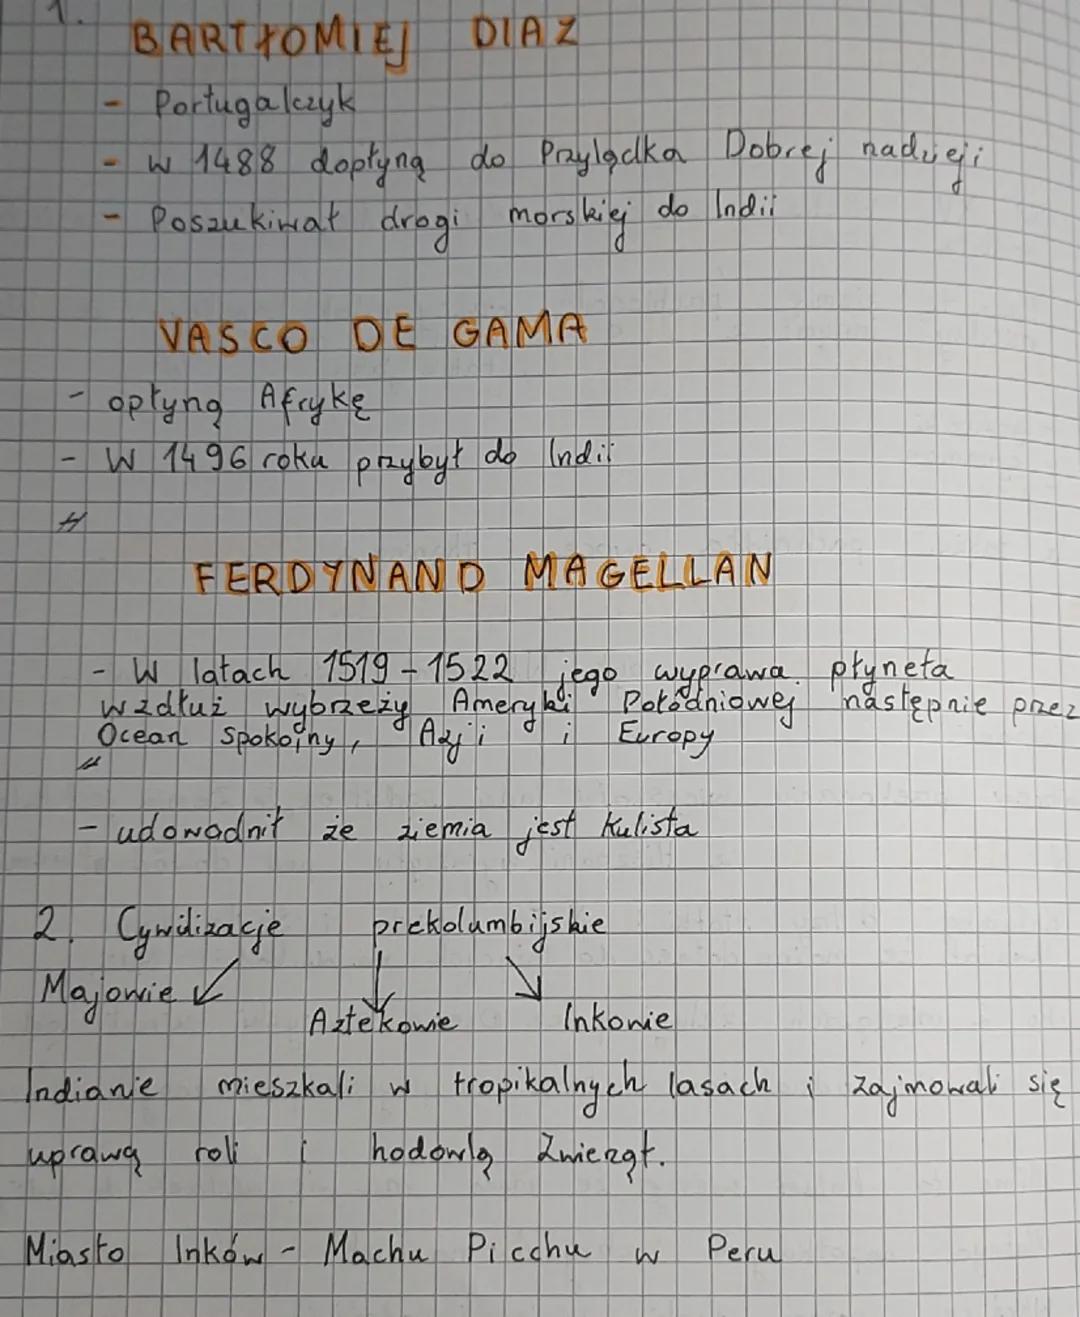 1.
BARTŁOMIEJ DIAZ
- Portugalczyk
- w 1488 dopłyną do Przylądka Dobrej nadzieji
- Poszukiwał drogi morskiej do Indii
VASCO DE GAMA
- opłyną Afrykę
- W 1496 roku przybył do Indii
FERDYNAND MAGELLAN
- W latach 1519-1522 jego wyprawa płyneła
wzdłuż wybrzeży Ameryki Połódniowej następnie przez
Ocean spokojny, Azji i Europy
- udowadnił że ziemia jest kulista
2. Cywilizacje prekolumbijskie
Majowie
Aztekowie Inkowie
Indianie mieszkali w tropikalnych lasach i zajmowali się
uprawą roli i hodowlą zwierząt.
Miasto Inków - Machu Picchu w Peru